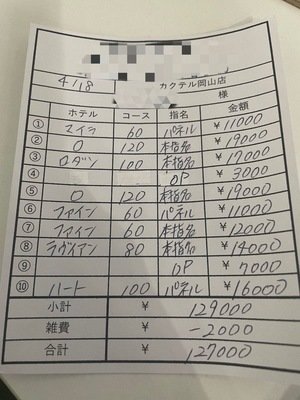 4/18 カクテル岡山店
様
ホテル コース 指名 金額
① マイラ 60 パネル ¥11000
② O 120 本指名 ¥19000
③ ロダン 100 本指名 ¥17000
④ OP ¥3000
⑤ O 120 本指名 ¥19000
⑥ ファイン 60 パネル ¥11000
⑦ ファイン 60 本指名 ¥12000
⑧ ラヴィアン 80 本指名 ¥14000
⑨ OP ¥7000
⑩ ハート 100 パネル ¥16000
小計 ¥ 129000
雑費 ¥ -2000
合計 ¥ 127000